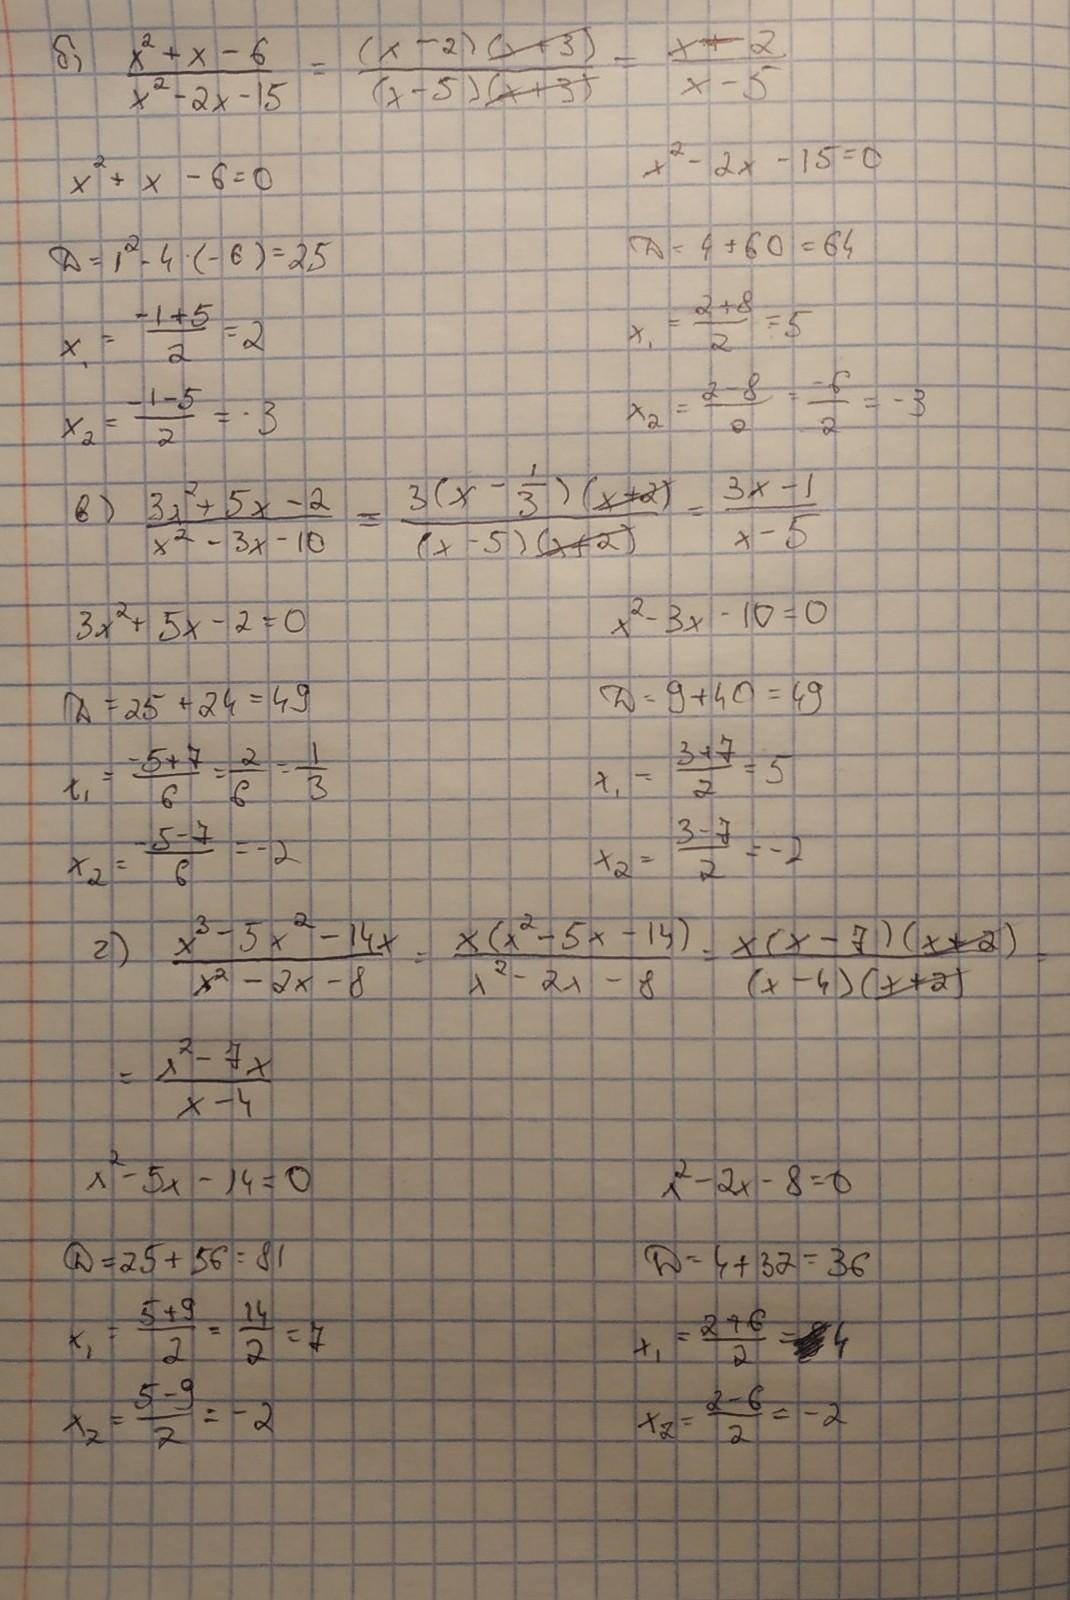 б) (x² + x - 6)/(x² - 2x - 15) = ((x - 2)(x + 3))/((x - 5)(x + 3)) = (x - 2)/(x - 5)
x² + x - 6 = 0    x² - 2x - 15 = 0
D = 1² - 4·(-6) = 25    D = 4 + 60 = 64
x₁ = (-1 + 5)/2 = 2    x₁ = (2 + 8)/2 = 5
x₂ = (-1 - 5)/2 = -3    x₂ = (2 - 8)/2 = -6/2 = -3
в) (3x² + 5x - 2)/(x² - 3x - 10) = (3(x - 1/3)(x + 2))/((x - 5)(x + 2)) = (3x - 1)/(x - 5)
3x² + 5x - 2 = 0    x² - 3x - 10 = 0
D = 25 + 24 = 49    D = 9 + 40 = 49
x₁ = (-5 + 7)/6 = 2/6 = 1/3    x₁ = (3 + 7)/2 = 5
x₂ = (-5 - 7)/6 = -2    x₂ = (3 - 7)/2 = -2
г) (x³ - 5x² - 14x)/(x² - 2x - 8) = (x(x² - 5x - 14))/(x² - 2x - 8) = (x(x - 7)(x + 2))/((x - 4)(x + 2)) =
= (x² - 7x)/(x - 4)
x² - 5x - 14 = 0    x² - 2x - 8 = 0
D = 25 + 56 = 81    D = 4 + 32 = 36
x₁ = (5 + 9)/2 = 14/2 = 7    x₁ = (2 + 6)/2 = 4
x₂ = (5 - 9)/2 = -2    x₂ = (2 - 6)/2 = -2